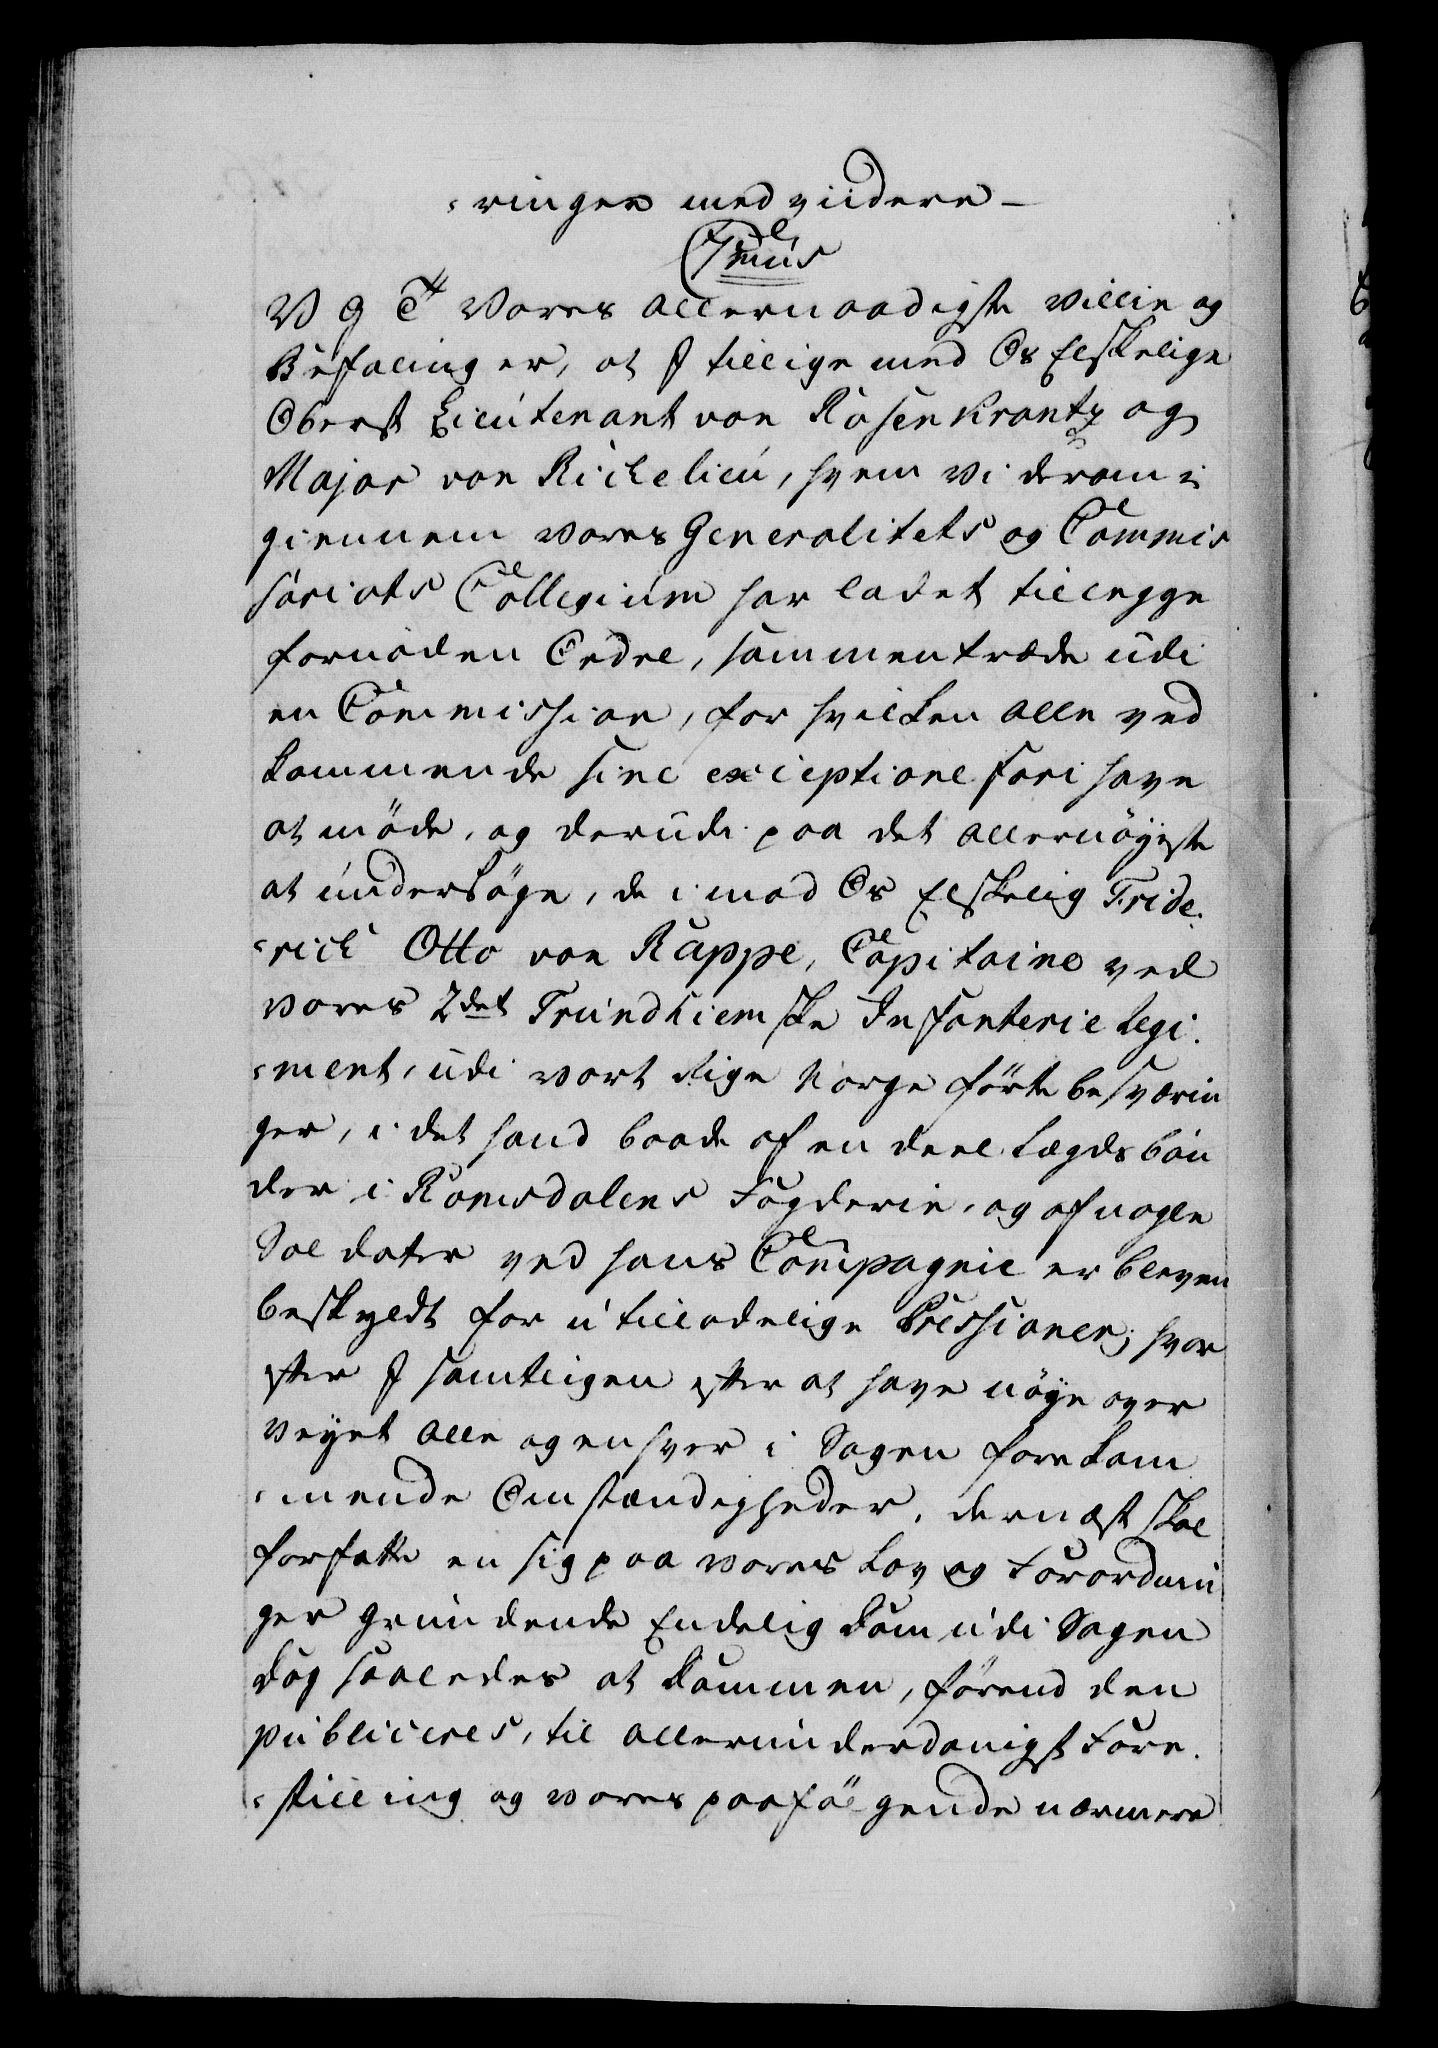 -ringer med viidere -
Cmus
V G T Vores allernaadigste Villie og
Befaling er, at I tillige med Os Elskelige
Oberst Lieutenant von Rosenkrantz og
Major von Richelieu, hvem Vi derom i-
giennem vores Generalitets og Commis
sariats Collegium har ladet tillegge
fornöden Ordre, sammentræde udi
en Commission, for hvilken alle ved
kommende sine exceptione fori have
at möde, og derudi paa det allernöyeste
at undersöge, de imod Os Elskelig Fride-
-rich Otto von Rappe, Capitaine ved
vores 2det Trundhiemske Infanterie Regi-
-ment, udi vort Rige Norge förte besværin
ger, i det hand baade af en deel Lægdsbön
der i Romsdalens Fogderie, og af nogle
Soldater ved hans Compagnie er bleven
beskyldt for utilladelige Pressioner; hvor
efter I samtligen efter at have nöye over
veyet alle og enhver i Sagen forekom
-mende Omstændigheder, dernæst skal
forfatte en sig paa vores Lov og Forordnin
ger grundende Endelig Dom udi Sagen
dog saaledes at Dommen, förend den
publiceres, til allerunderdanigst Fore-
-stilling og vores paafölgende nærmere